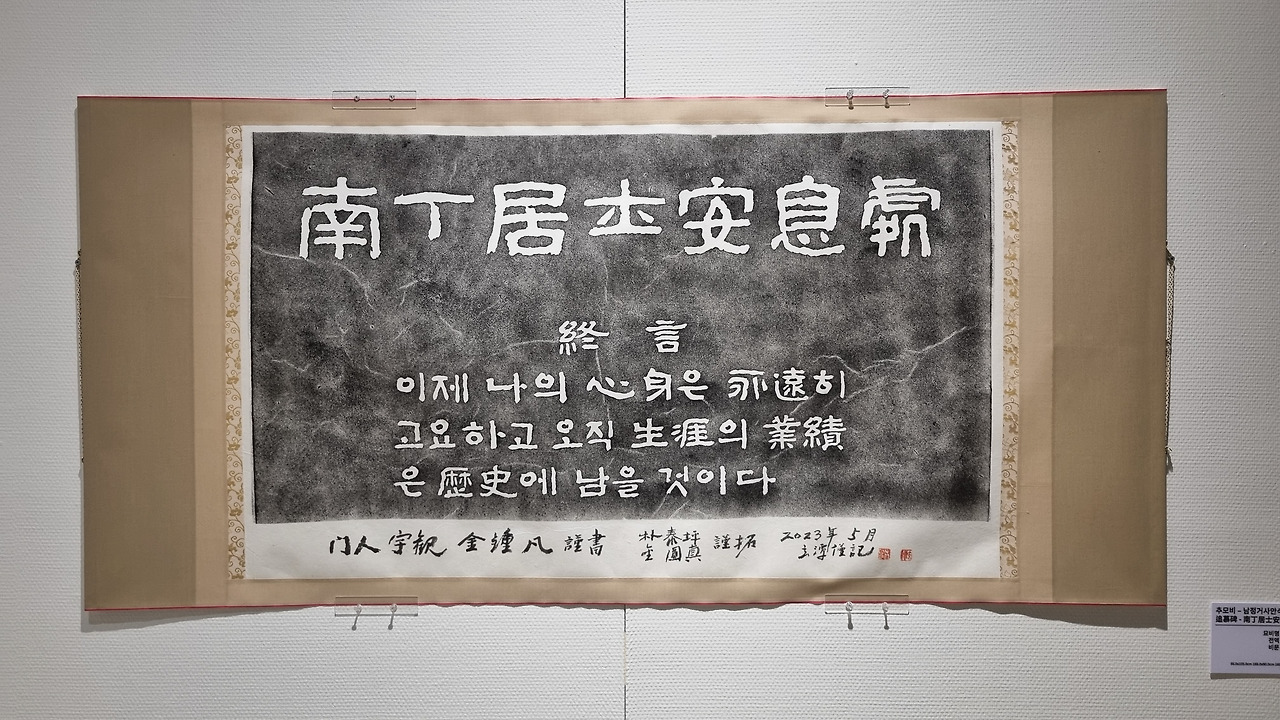 南丁居士安息處
終 言
이제 나의 心身은 永遠히
고요하고 오직 生涯의 業績
은 歷史에 남을 것이다
门人 宇觀 金鍾凡 謹書
朴泰坪 謹拓
2023年 5月
謹記
추모비 – 남정거사안
追慕碑 - 南丁居士安
묘비명
전액
비문